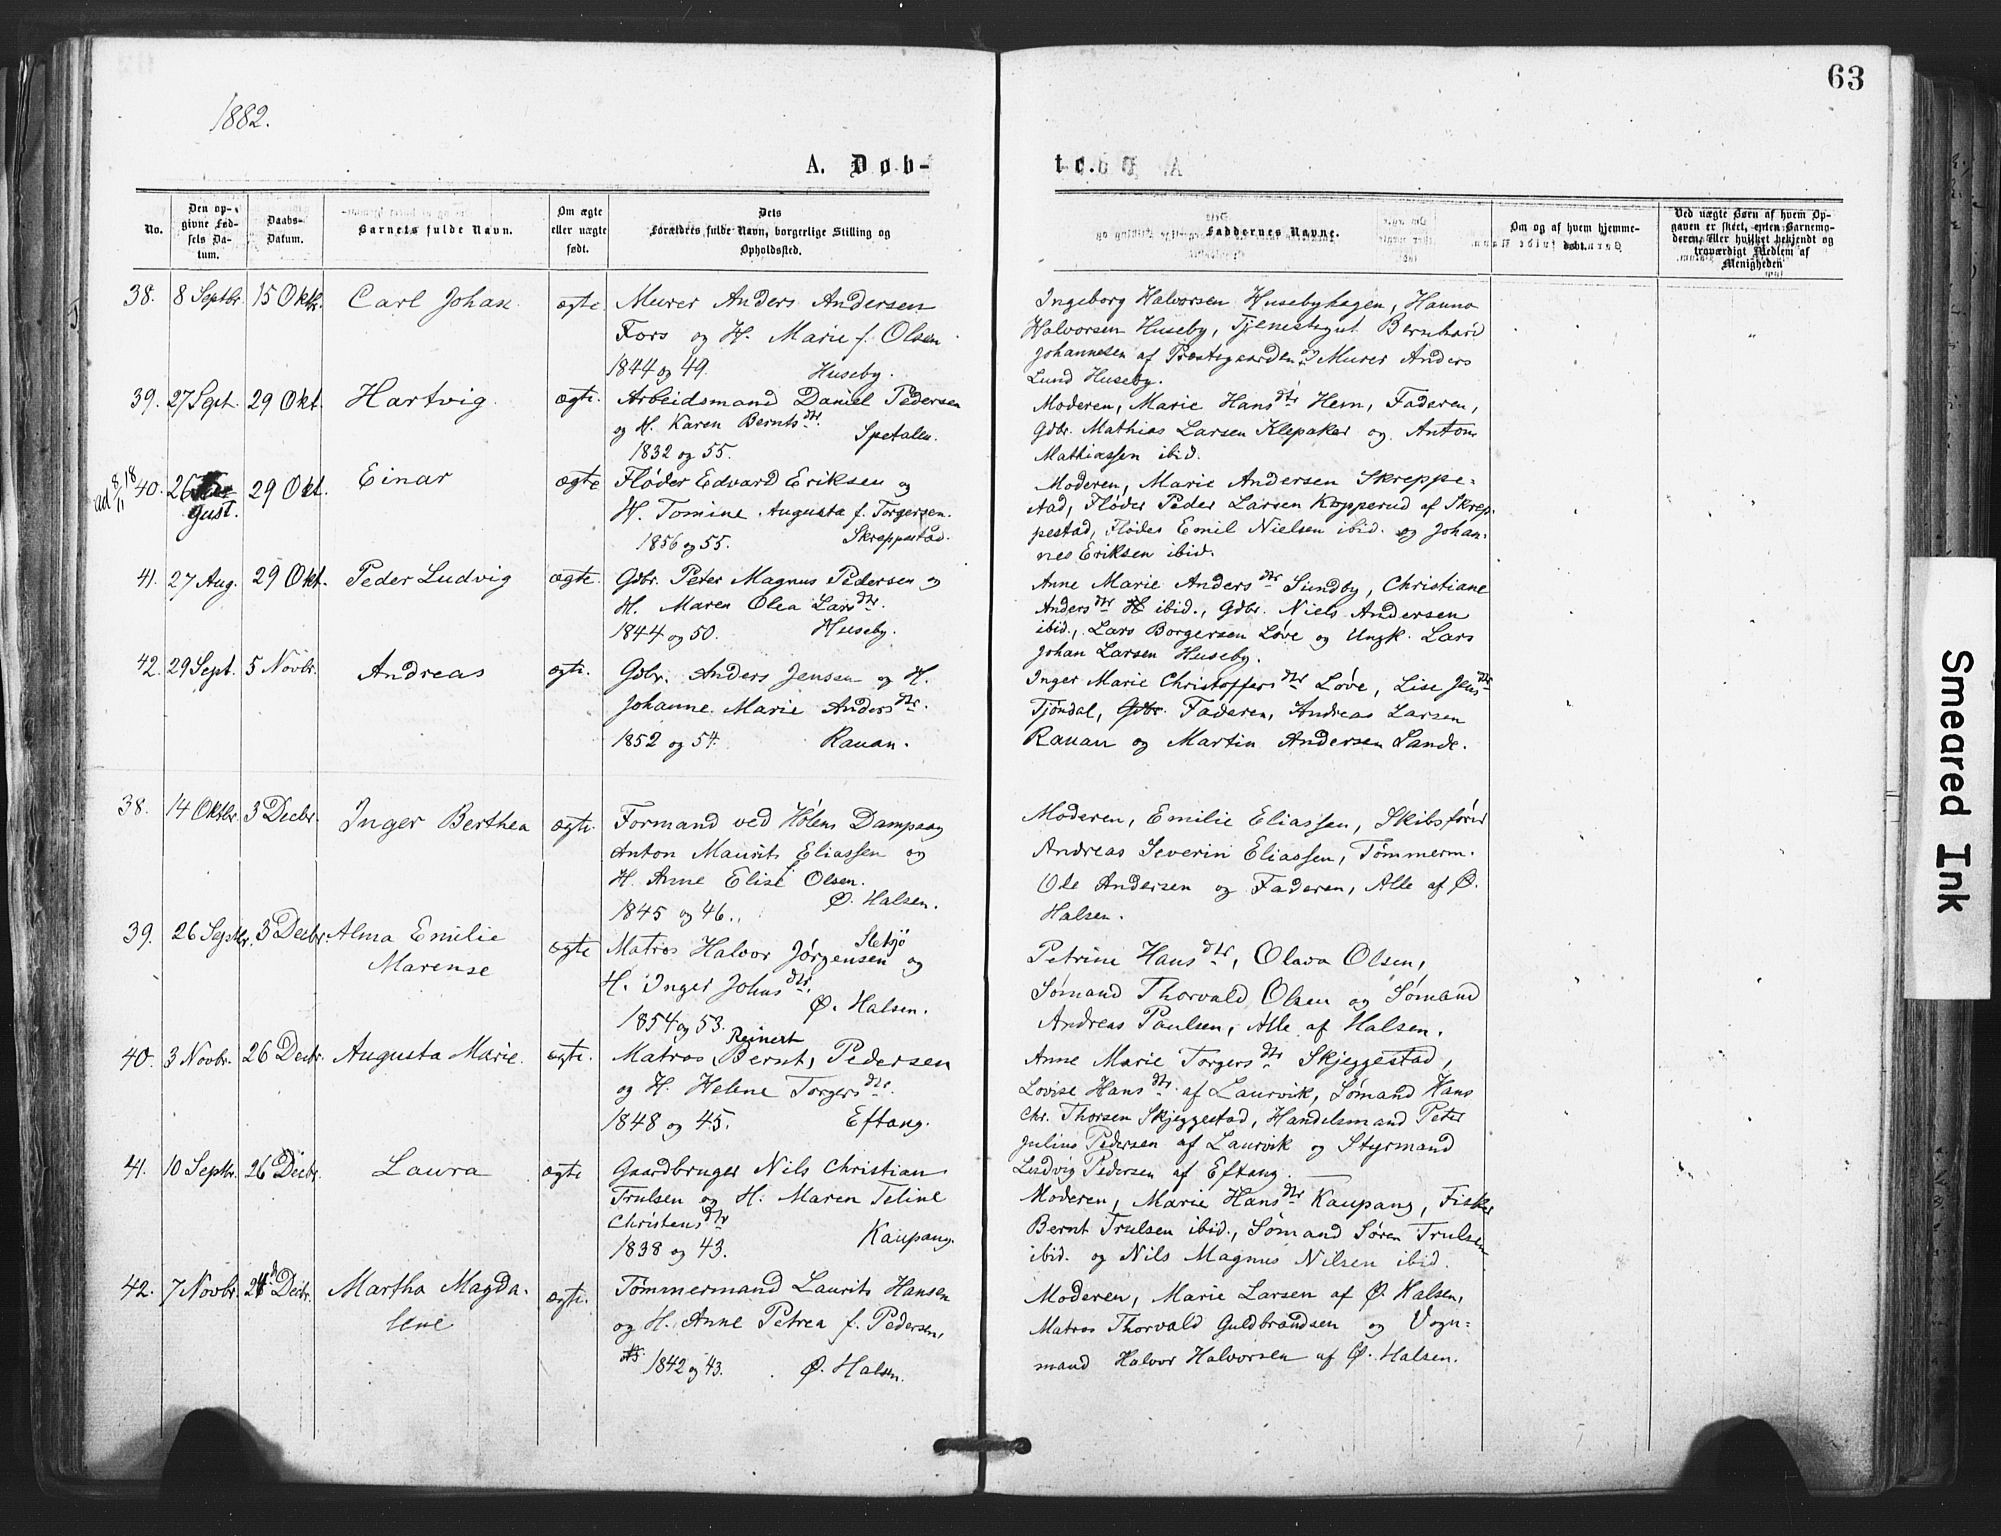 63
1882.
A. Døb-
te.
No.
Den op-
givne Fød-
sels Da-
tum.
Daabs-
Datum.
Barnets fulde Navn.
Om ægte
eller uægte
født.
Dets
Forældres fulde Navn, borgerlige Stilling og
Opholdssted.
Faddernes Navne.
Om og af hvem hjemme-
døbt.
Ved uægte Børn af hvem Op-
gaven er skeet, enten Barnemo-
deren, eller hvilket bekjendt og
troværdigt Medlem af
Menigheden
38. 8 Septbr. 15 Oktbr. Carl Johan ægte. Murer Anders Andersen
Fors og H. Marie f. Olsen
1844 og 49. Huseby.
Ingeborg Halvorsen Husebyhagen, Hanna
Halvorsen Huseby, Tjenestegut Bernhard
Johannesen af Præstegaarden og Murer Anders
Lund Huseby.
39. 27 Sept. 29 Okt. Hartvig ægte. Arbeidsmand Daniel Pedersen
og H. Karen Bernts dtr.
1832 og 55. Spetalen.
Moderen, Marie Hans dtr Hem, Faderen,
Gdbr. Mathias Larsen Klepaker og Anton
Mathiassen ibid.
ad 8/11 18
40. 26 Au-
gust. 29 Okt. Einar ægte Fløder Edvard Eriksen og
H. Tomine Augusta f. Torgersen.
1856 og 55. Skreppestad.
Moderen, Marie Andersen Skreppe-
stad, Fløder Peder Larsen Kopperud af Skrep-
pestad, Fløder Emil Nielsen ibid. og Johan-
nes Eriksen ibid.
41. 27 Aug. 29 Okt. Peder Ludvig ægte. Gdbr. Peter Magnus Pedersen og
H. Maren Olea Lars dtr.
1844 og 50. Huseby.
Anne Marie Anders dtr Sundby, Christiane
Anders dtr ibid., Gdbr. Niels Andersen
ibid., Lars Borgersen Løve og Ungk. Lars
Johan Larsen Huseby.
42. 29 Sept. 5 Novbr. Andreas ægte. Gdbr. Anders Jensen og H.
Johanne Marie Anders dtr.
1852 og 54. Rauan.
Inger Marie Christoffers dtr Løve, Lise Jens dtr
Tjøndal, Gdbr. Faderen, Andreas Larsen
Rauan og Martin Andersen Lande.
38. 14 Oktbr. 3 Decbr. Inger Berthea ægte. Formand ved Hølens Dampsag
Anton Maurits Eliassen og
H. Anne Elise Olsen.
1845 og 46. Ø. Halsen.
Moderen, Emilie Eliassen, Skibsfører
Andreas Severin Eliassen, Tømmerm.
Ole Andersen og Faderen, Alle af Ø.
Halsen.
39. 26 Septbr. 3 Decbr. Alma Emilie
Marense ægte Matros Halvor Jørgensen og
H. Inger Johns dtr.
1854 og 53. Ø. Halsen.
Petrine Hans dtr, Olava Olsen,
Sømand Thorvald Olsen og Sømand
Andreas Paulsen, Alle af Halsen.
40. 3 Novbr. 26 Decbr. Augusta Marie ægte. Reinert
Matros Bernt, Pedersen
og H. Helene Torgers dtr.
1848 og 45. Eftang.
Anne Marie Torgers dtr Skjeggestad,
Lovise Hans dtr af Laurvik, Sømand Hans
Chr. Thorsen Skjeggestad, Handelsmand Peter
Julius Pedersen af Laurvik og Styrmand
Ludvig Pedersen af Eftang.
41. 10 Septbr. 26 Decbr. Laura ægte Gaardbruger Nils Christian
Trulsen og H. Maren Teline
Christens dtr
1838 og 43. Kaupang.
Moderen, Marie Hans dtr Kaupang, Fisker
Bernt Trulsen ibid., Sømand Søren Trulsen
ibid. og Nils Magnus Nilsen ibid.
42. 7 Novbr. Decbr. Martha Magda-
lene ægte. Tømmermand Laurits Hansen
og H. Anne Petrea f. Pedersen,
1842 og 43. Ø. Halsen.
Moderen, Marie Larsen af Ø. Halsen,
Matros Thorvald Guldbrandsen og Vogn-
mand Halvor Halvorsen af Ø. Halsen.
Smeared Ink